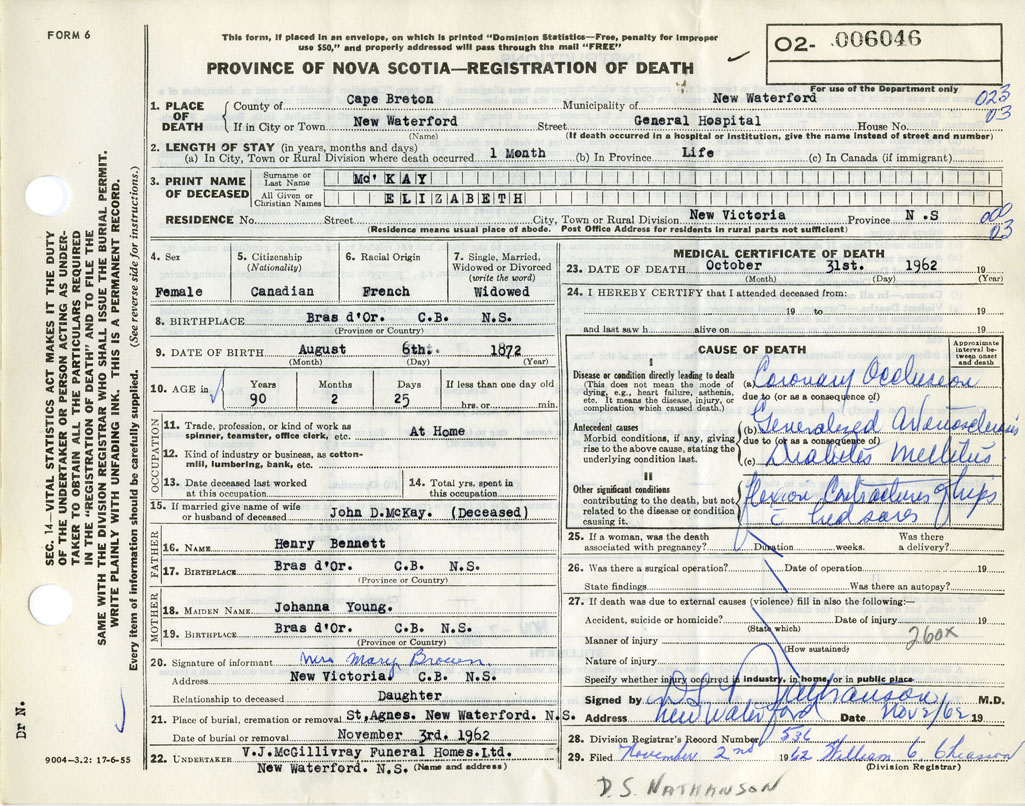 FORM 6
This form, if placed in an envelope, on which is printed "Dominion Statistics—Free, penalty for improper
use $50," and properly addressed will pass through the mail "FREE"
PROVINCE OF NOVA SCOTIA—REGISTRATION OF DEATH
02- 006046
For use of the Department only
023
03
1. PLACE OF DEATH
County of Cape Breton Municipality of New Waterford
If in City or Town New Waterford Street General Hospital House No.
(Name) (If death occurred in a hospital or institution, give the name instead of street and number)
2. LENGTH OF STAY (in years, months and days)
(a) In City, Town or Rural Division where death occurred 1 Month (b) In Province Life (c) In Canada (if immigrant)
3. PRINT NAME OF DECEASED
Surname or Last Name Mc'KAY
All Given or Christian Names ELIZABETH
RESIDENCE No. Street City, Town or Rural Division New Victoria Province N.S
(Residence means usual place of abode. Post Office Address for residents in rural parts not sufficient)
000
03
4. Sex
Female
5. Citizenship
(Nationality)
Canadian
6. Racial Origin
French
7. Single, Married,
Widowed or Divorced
(write the word)
Widowed
8. BIRTHPLACE Bras d'Or. C.B. N.S.
(Province or Country)
9. DATE OF BIRTH August 6th. 1872
(Month) (Day) (Year)
10. AGE in
Years Months Days If less than one day old
90 2 25 hrs. or min.
OCCUPATION
11. Trade, profession, or kind of work as
spinner, teamster, office clerk, etc. At Home
12. Kind of industry or business, as cotton-
mill, lumbering, bank, etc.
13. Date deceased last worked
at this occupation
14. Total yrs. spent in
this occupation
15. If married give name of wife
or husband of deceased John D.McKay. (Deceased)
FATHER
16. NAME Henry Bennett
17. BIRTHPLACE Bras d'Or. C.B. N.S.
(Province or Country)
MOTHER
18. MAIDEN NAME Johanna Young.
19. BIRTHPLACE Bras d'Or. C.B. N.S.
(Province or Country)
20. Signature of informant Mrs Mary Brown.
Address New Victoria C.B. N.S.
Relationship to deceased Daughter
21. Place of burial, cremation or removal St,Agnes. New Waterford. N.S.
Date of burial or removal November 3rd. 1962
22. UNDERTAKER V.J.McGillivray Funeral Homes.Ltd.
New Waterford. N.S. (Name and address)
MEDICAL CERTIFICATE OF DEATH
23. DATE OF DEATH October 31st. 1962 19
(Month) (Day) (Year)
24. I HEREBY CERTIFY that I attended deceased from:
19 to 19
and last saw h alive on 19
CAUSE OF DEATH
Approximate
interval be-
tween onset
and death
I
Disease or condition directly leading to death
(This does not mean the mode of
dying, e.g., heart failure, asthenia,
etc. It means the disease, injury, or
complication which caused death.)
(a) Coronary Occlusion
due to (or as a consequence of)
Antecedent causes
Morbid conditions, if any, giving
rise to the above cause, stating the
underlying condition last.
(b) Generalized Arteriosclerosis
due to (or as a consequence of)
(c) Diabetes Mellitus
II
Other significant conditions
contributing to the death, but not
related to the disease or condition
causing it.
flexion Contractures of hips
c̄ bed sores
25. If a woman, was the death
associated with pregnancy? Duration weeks. Was there
a delivery?
26. Was there a surgical operation? Date of operation 19
State findings Was there an autopsy?
27. If death was due to external causes (violence) fill in also the following:—
Accident, suicide or homicide? Date of injury 19
(State which)
Manner of injury 260x
(How sustained)
Nature of injury
Specify whether injury occurred in industry, in home, or in public place
Signed by D S Nathanson M.D.
Address New Waterford Date Nov 2/62 19
28. Division Registrar's Record Number 536
29. Filed November 2nd 1962 William G Gleason
(Division Registrar)
D.S. NATHANSON
SEC. 14—VITAL STATISTICS ACT MAKES IT THE DUTY
OF THE UNDERTAKER OR PERSON ACTING AS UNDER-
TAKER TO OBTAIN ALL THE PARTICULARS REQUIRED
IN THE "REGISTRATION OF DEATH" AND TO FILE THE
SAME WITH THE DIVISION REGISTRAR WHO SHALL ISSUE THE BURIAL PERMIT.
WRITE PLAINLY WITH UNFADING INK. THIS IS A PERMANENT RECORD.
Every item of information should be carefully supplied. (See reverse side for instructions.)
Dr N.
9004—3.2: 17-6-55